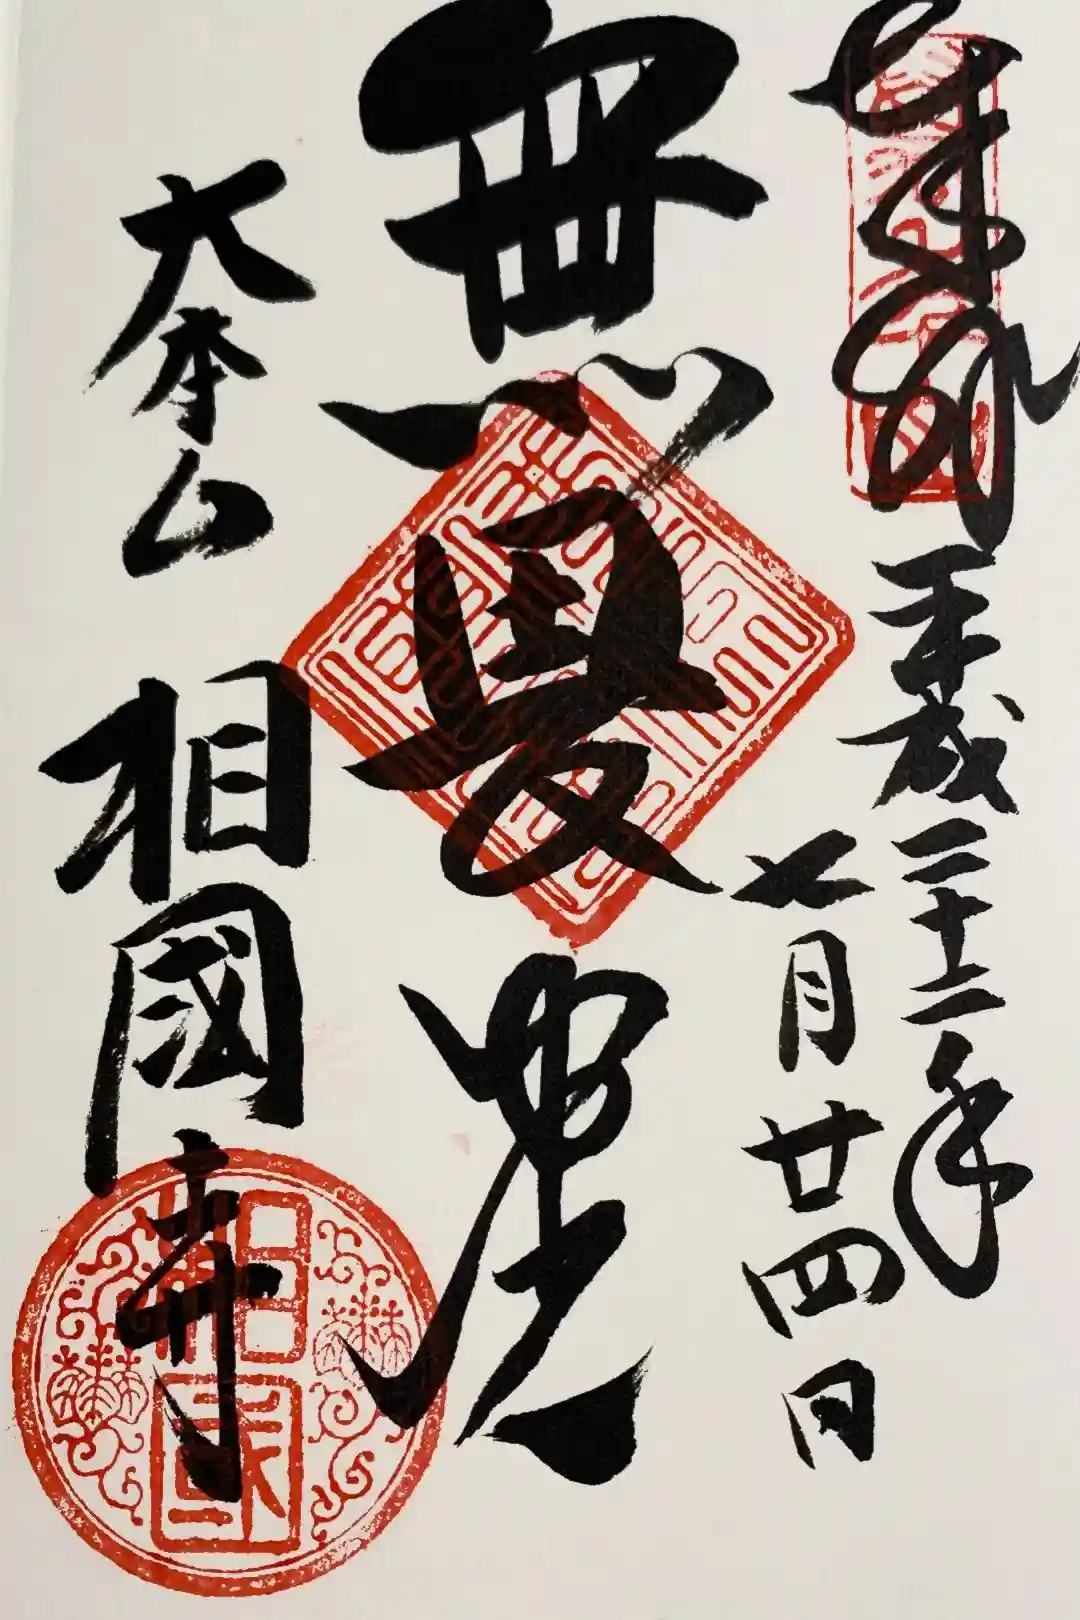 奉拝
平成二十二年
七月廿四日
無畏堂
大本山 相國寺